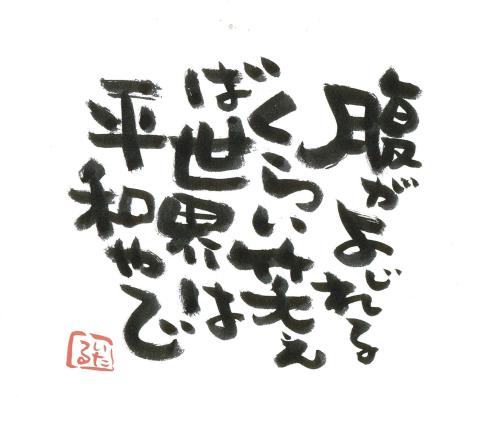 腹がよじれる
くらい笑え
ば世界は
平和やで
いたる